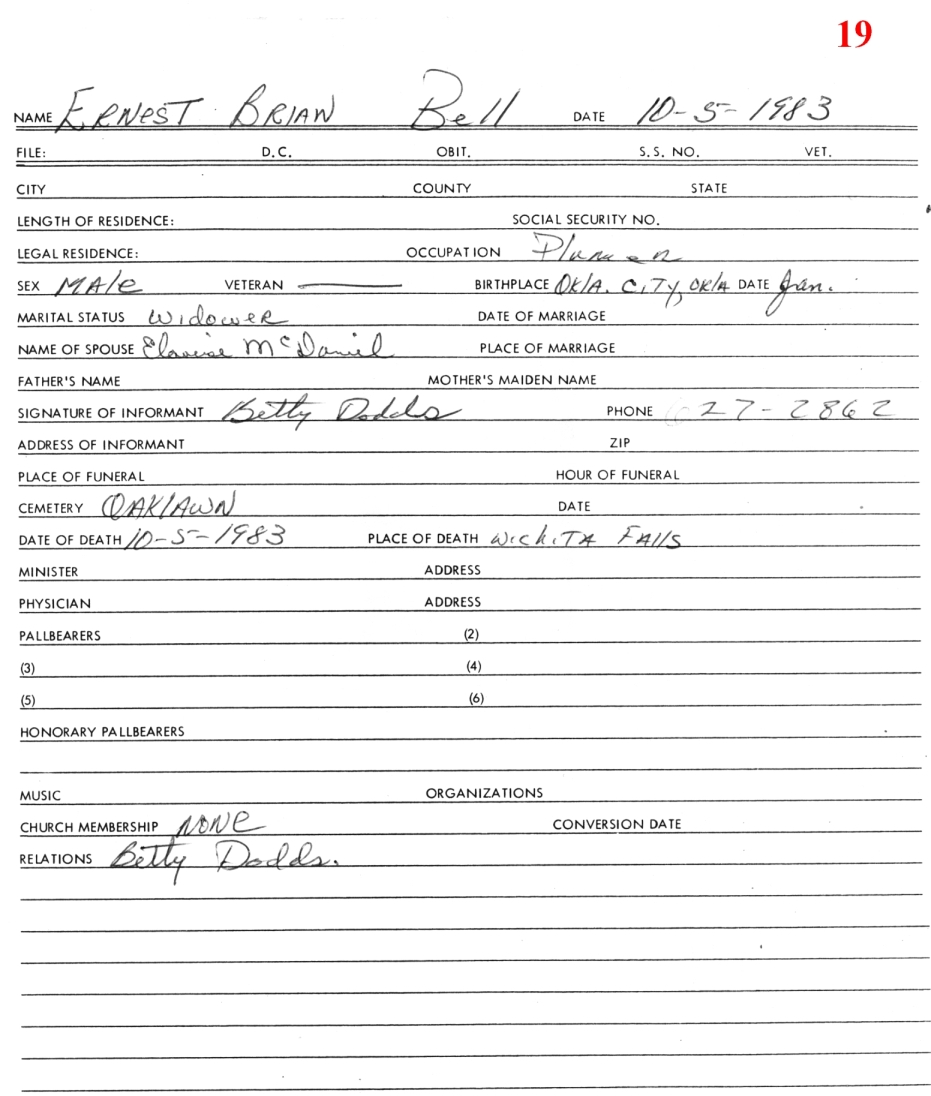 19
NAME ERNEST BRIAN Bell DATE 10-5-1983
FILE: D.C. OBIT. S.S. NO. VET.
CITY COUNTY STATE
LENGTH OF RESIDENCE: SOCIAL SECURITY NO.
LEGAL RESIDENCE: OCCUPATION
SEX MAle VETERAN BIRTHPLACE OKlA. CITY, OKlA DATE Jan.
MARITAL STATUS WidoweR DATE OF MARRIAGE
NAME OF SPOUSE McDaniel PLACE OF MARRIAGE
FATHER'S NAME MOTHER'S MAIDEN NAME
SIGNATURE OF INFORMANT Betty Dodds PHONE 627-2862
ADDRESS OF INFORMANT ZIP
PLACE OF FUNERAL HOUR OF FUNERAL
CEMETERY OAKlAWN DATE
DATE OF DEATH 10-5-1983 PLACE OF DEATH WichiTA FAllS
MINISTER ADDRESS
PHYSICIAN ADDRESS
PALLBEARERS (2)
(3) (4)
(5) (6)
HONORARY PALLBEARERS
MUSIC ORGANIZATIONS
CHURCH MEMBERSHIP NONe CONVERSION DATE
RELATIONS Betty Dodds.